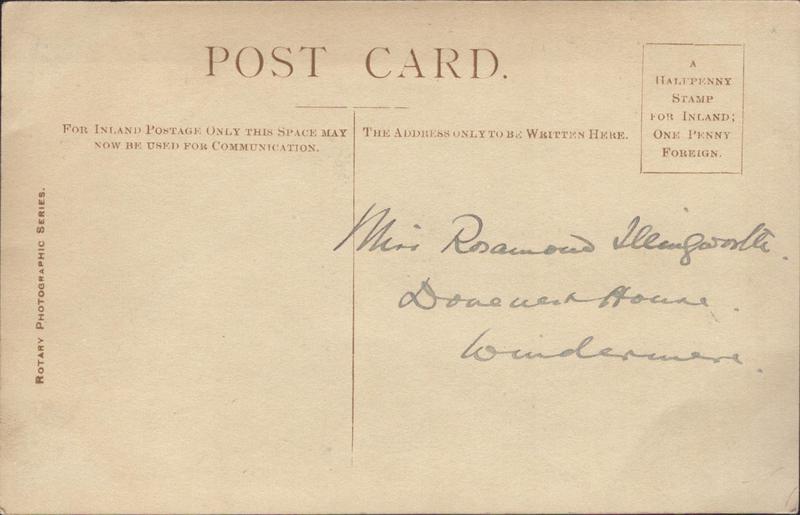 POST CARD.
A
HALFPENNY
STAMP
FOR INLAND;
ONE PENNY
FOREIGN.
FOR INLAND POSTAGE ONLY THIS SPACE MAY
NOW BE USED FOR COMMUNICATION.
THE ADDRESS ONLY TO BE WRITTEN HERE.
ROTARY PHOTOGRAPHIC SERIES.
Miss Rosamond Illingworth.
House.
Windermere.